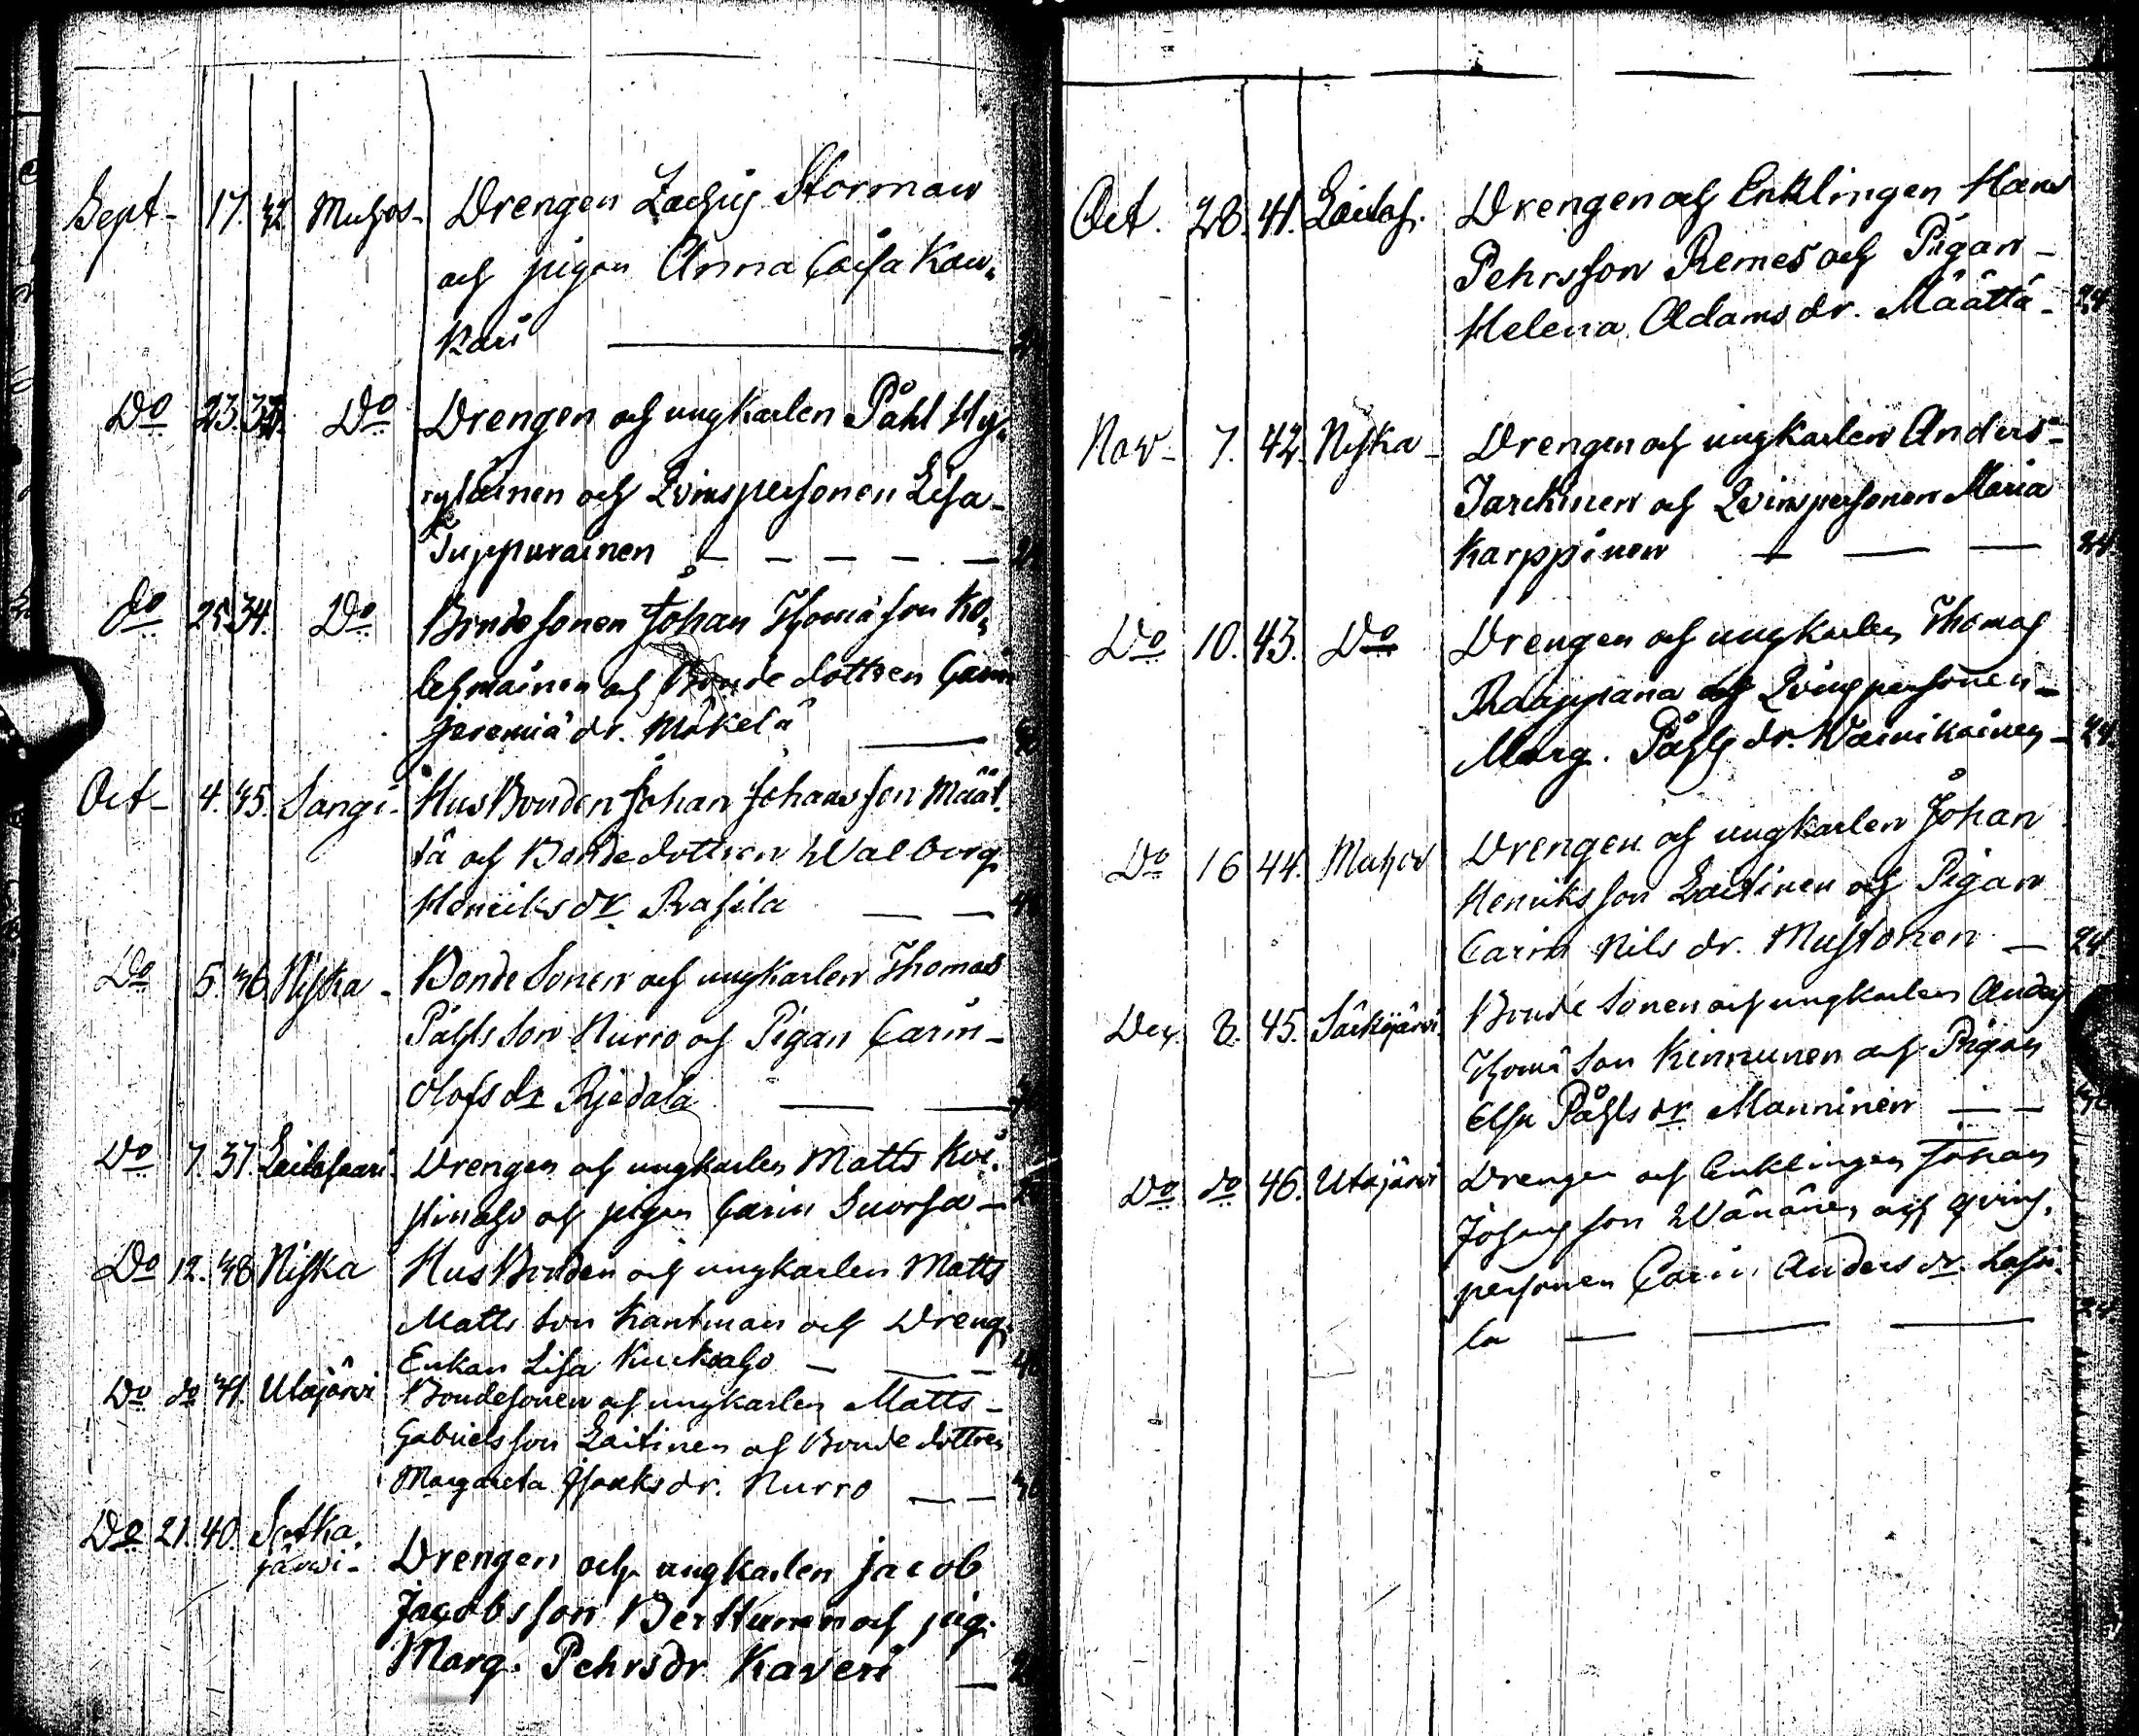 Sept- 17. 32. Muhos- Drengen Zachris Storman
och pigan Anna Caisa Kau-
kari
Do 23. 33. Do Drengen och ungkarlen Påhl Hy-
ryläinen och Qvinspersonen Lisa
Tuppurainen
do 25. 34. Do Bondesonen Johan Thomasson Ko-
lehmainen och Bonde dottren Carin
Jeremiæ dr. Mäkelä
Oct- 4. 35. Sangi- Husbonden Johan Johansson Määt-
tä och Bondedottren Walborg
Henriks dr Rasila
Do 5. 36. Niska- Bonde Sonen och ungkarlen Thomas
Påhls Son Nurro och Pigan Carin
Olofs dr
Do 7. 37. Laitasaari. Drengen och ungkarlen Matts Koi-
och pigan Carin Suorsa
Do 12. 38. Niska Husbonden och ungkarlen Matts
Matts Son Kantman och Dreng
Enkan Lisa
Do do 39. Utajärvi Bondesonen och ungkarlen Matts
Gabriels son Laitinen och Bonde dottren
Margareta Isaks dr. Nurro
Do 21. 40. Sotka-
järwi- Drengen och ungkarlen Jacob
Jacobsson Berttunen och pig.
Marg. Pehrsdr Kaveri
Oct. 28. 41. Laitas. Drengen och Enklingen Hans
Pehrsson Remes och Pigan
Helena Adams dr. Määttä 24
Nov- 7. 42. Niska- Drengen och ungkarlen Anders
Jarckinen och Qvinspersonen Maria
Karppinen 24.
Do 10. 43. Do Drengen och ungkarlen Thomas
Raappana och Qvinspersonen
Marg. Påhls dr. Wainikainen 24.
Do 16 44. Muhos Drengen och ungkarlen Johan
Henriks son Laitinen och Pigan
Carin Nils dr. Mustonen 24.
Dec. 8. 45. Särkijärvi Bonde Sonen och ungkarlen Anders
Thomæ Son Kinnunen och Pigan
Elsa Påhls dr Manninen
Do do 46. Utajärvi Drengen och Enklingen Johan
Johans son Wänänen och qvins-
personen Carin Anders dr.
la 24